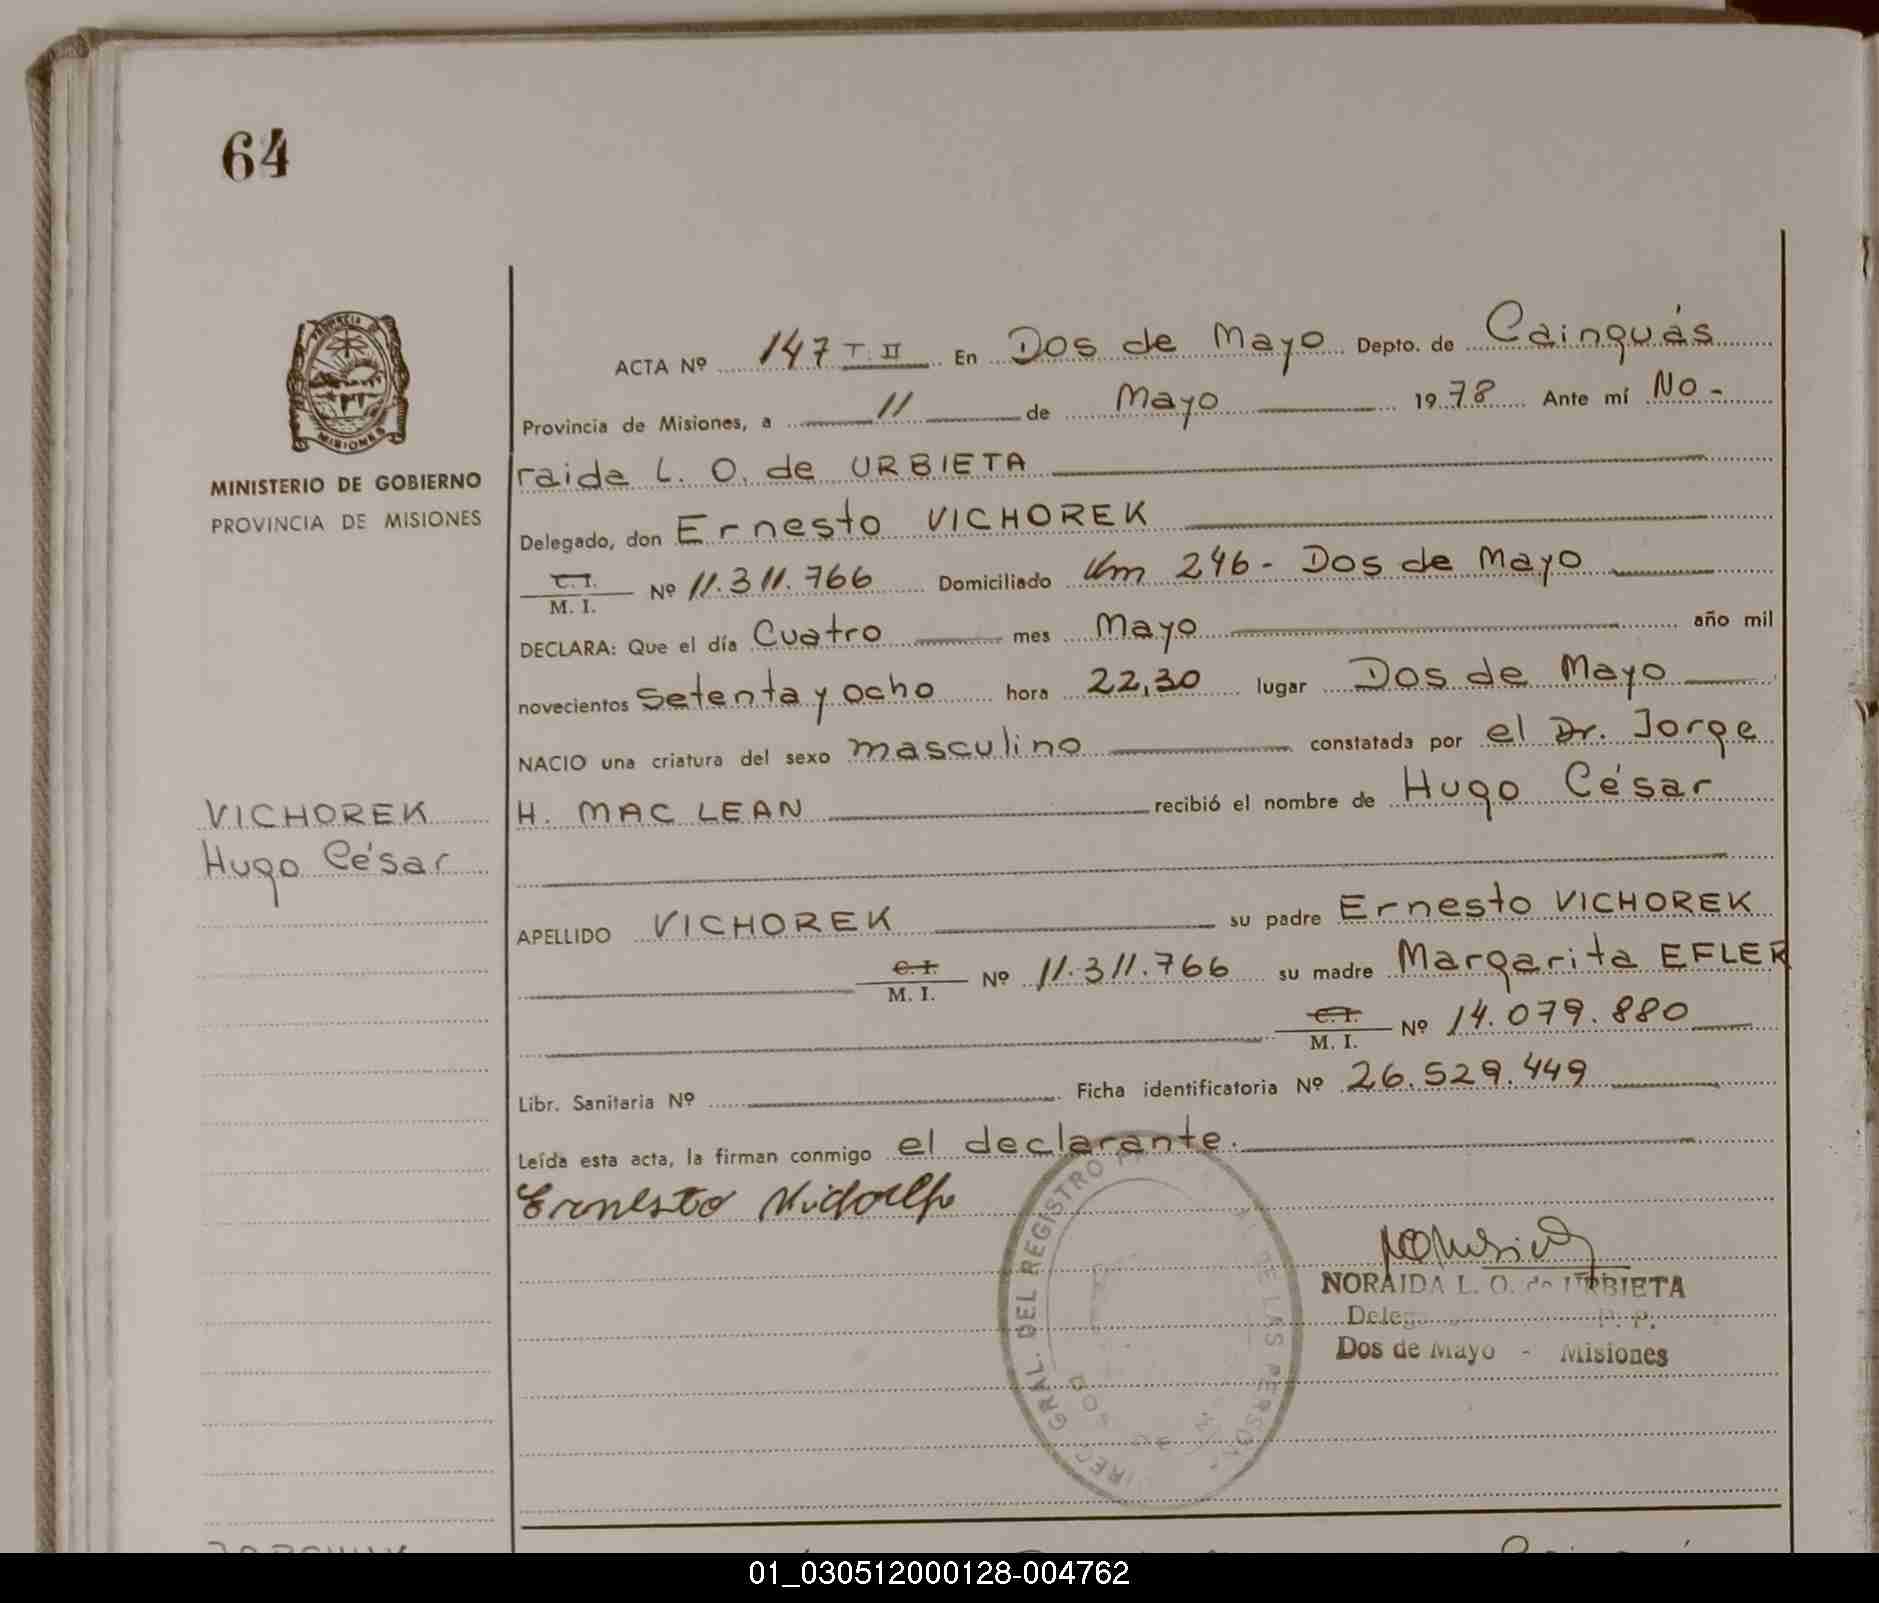 64
PROVINCIA DE
MISIONES
MINISTERIO DE GOBIERNO
PROVINCIA DE MISIONES
VICHOREK
Hugo César
ACTA Nº 147 T. II En Dos de Mayo Depto. de Cainguás
Provincia de Misiones, a 11 de Mayo 1978 Ante mí No-
raida L. O. de URBIETA
Delegado, don Ernesto VICHOREK
C.I. M. I. Nº 11.311.766 Domiciliado Km 246- Dos de Mayo
DECLARA: Que el día Cuatro mes Mayo año mil
novecientos setenta y ocho hora 22,30 lugar Dos de Mayo
NACIO una criatura del sexo masculino constatada por el Dr. Jorge
H. MAC LEAN recibió el nombre de Hugo César
APELLIDO VICHOREK su padre Ernesto VICHOREK
C.I. M. I. Nº 11.311.766 su madre Margarita EFLER
C.I. M. I. Nº 14.079.880
Libr. Sanitaria Nº Ficha identificatoria Nº 26.529.449
Leída esta acta, la firman conmigo el declarante.
Ernesto
GRAL. DEL REGISTRO DE LAS
DOS DE
NORAIDA L. O. de URBIETA
P. P.
Dos de Mayo - Misiones
01_030512000128-004762